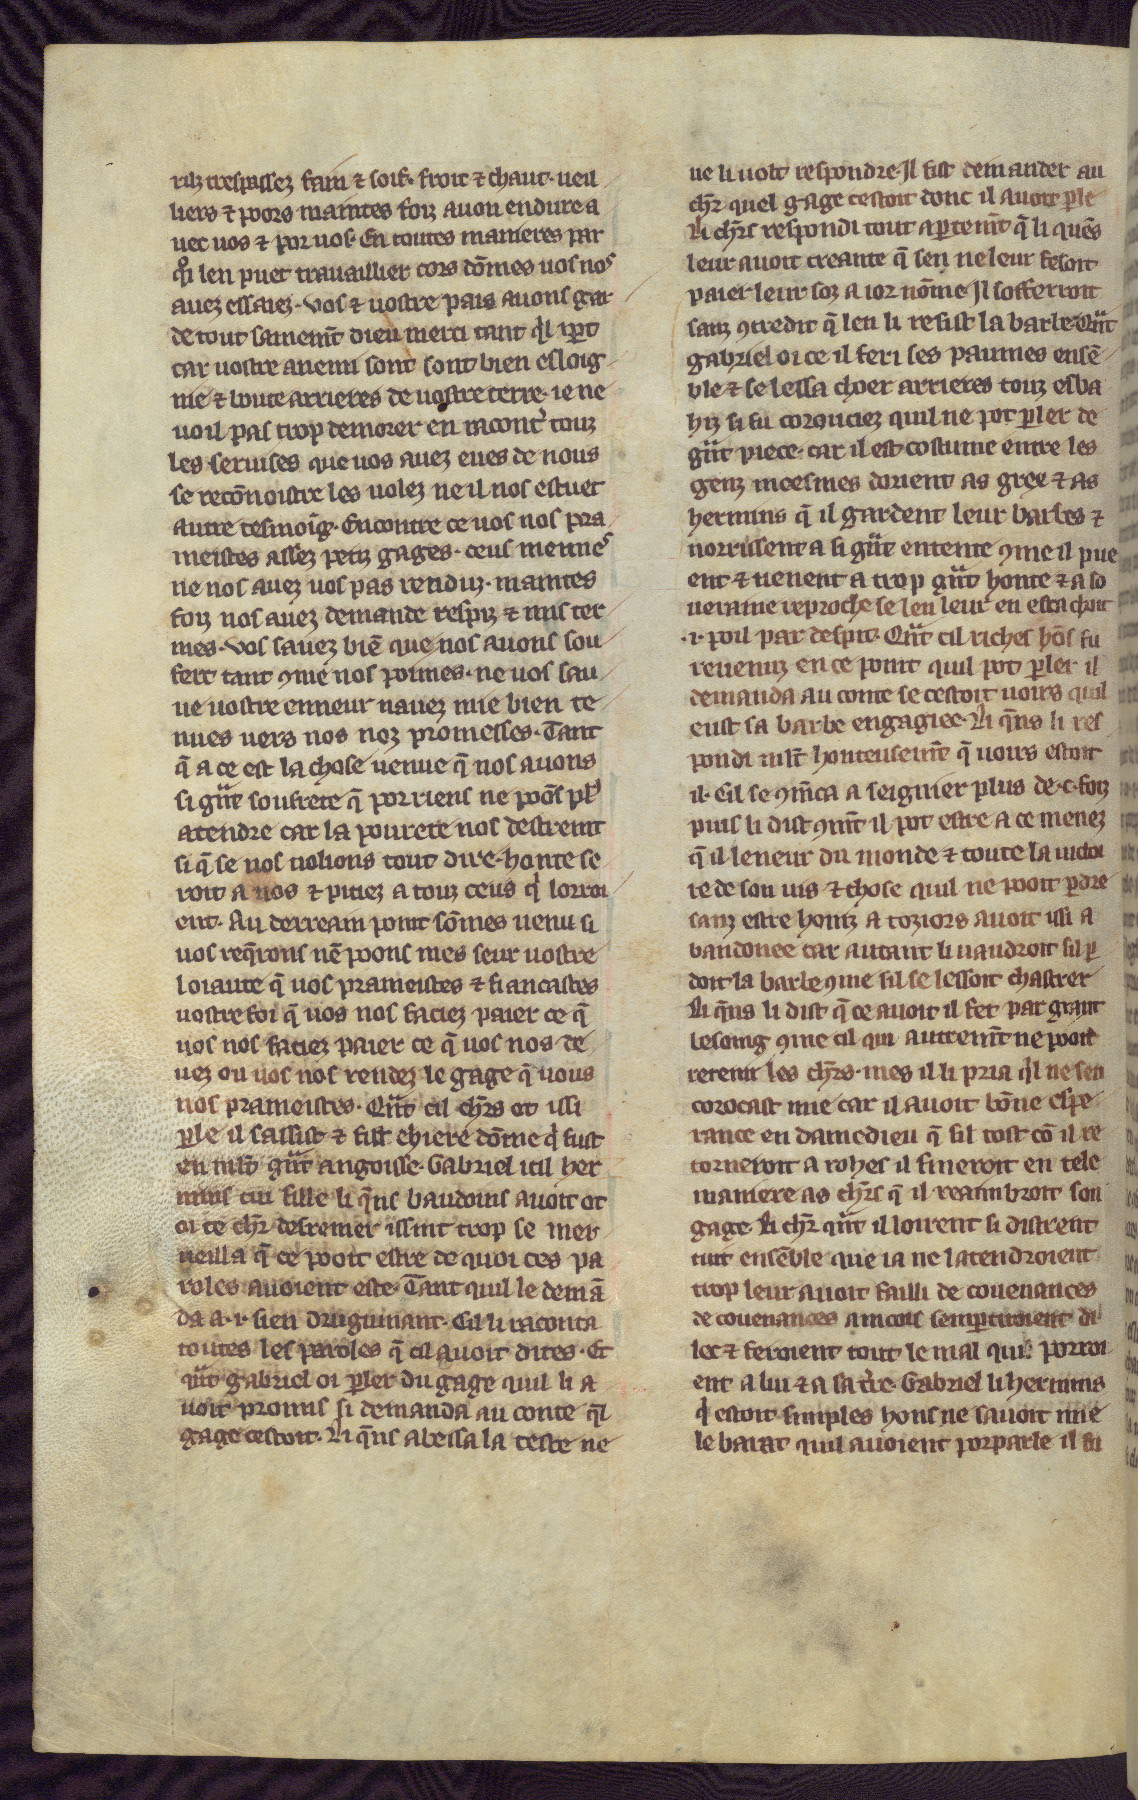 rilz trespassez fain ⁊ soif· froit ⁊ chaut· ueil
liers ⁊ poors maintes foiz auon endure a
uec uos ⁊ por uos· En toutes manieres par
qoi len puet trauaillier cors dōmes uos nos
auez essaiez· Vos ⁊ uostre pais auons gar
de tout sainemt̄ dieu merci tant ql ipt
car uostre anemi sont sont bien esloig
nie ⁊ boute arrieres de uostre terre· ie ne
uoil pas trop demorer en racont' touz
les seruises que uos auez eues de nous
se recōnoistre les uolez ne il nos estuet
autre tesmoiḡ· Encontre ce uos nos pra
meistes assez petiz gages· ceus mennes
ne nos auez uos pas renduz· maintes
foiz nos auez demande respiz ⁊ mis ter
mes· Vos sauez biē que nos auons sou
fert tant 9me nos poimes· ne uos sau
ue uostre enneur nauez mie bien te
nues uers nos noz promesses· Tant
q̄ a ce est la chose uenue q̄ nos auons
si gͣt soufrete q̄ por riens ne poōs pl'
atendre car la pourete nos destreint
si q̄ se nos uolions tout dire· honte se
roit a uos ⁊ pitiez a touz ceus q' lorroi
ent· Au derreain point sōmes uenu si
uos req̄rons nē poons mes seur uostre
loiaute q̄ uos prameistes ⁊ fiancastes
uostre foi q̄ uos nos faciez paier ce q̄
uos nos faciez paier ce q̄ uos nos de
uez ou uos nos rendez le gage q̄ uous
nos prameistes· Qͣt cil chr̄s ot issi
ꝑle il sassist ⁊ fist chiere dōme q' fust
en mlt̄ gͣt angoisse· Gabriel icil her
mins cui fille li q̄ns baudoins auoit ot
oi ce chr̄ desremer issint trop se mer
ueilla q̄ ce pooit estre de quoi ces pa
roles auoient este· Tant quil le demā
da a·i· sien druguinant· Cil li raconta
toutes les paroles q̄ cil auoit dites· Et
qͣt gabriel oi ꝑler du gage quil li a
uoit promis si demanda au conte ql̄
gage cestoit· Li q̄ns abessa la teste ne
ue li uolt respondre· Il fist demander au
chr̄ quel gage cestoit donc il auoit ꝑle
Li chr̄s respondi tout aꝑtemt̄ q̄ li quēs
leur auoit creante q̄ sen ne leur fesoit
paier leur soz a ior nōme· Il sofferroit
sanz 9tredit q̄ len li resist la barbe· Qͣt
gabriel oi ce il feri ses paumes ensē
ble ⁊ se lessa choer arrieres touz esba
hiz si fu corouciez quil ne pot ꝑler de
gͣt piece· car il est costume entre les
genz meesmes dorient as grex ⁊ as
hermins q̄ il gardent leur barbes ⁊
norrissent a si gͣt entente 9me il pue
ent ⁊ tienent a trop gͣt honte ⁊ a so
ueraine reproche se len leur en esrachoit
·i· poil par despit· Qͣt cil riches hōs fu
reuenuz en ce point quil pot ꝑler il
demanda au conte se cestoit uoirs quil
eust sa barbe engagiee· Li q̄ns li res
pondi mlt̄ honteusemt̄ q̄ uoirs estoit
il· Cil se 9mēca a seignier plus de·c· foiz
puis li dist 9mt̄ il pot estre a ce menez
q̄ il leneur du monde ⁊ toute la uictoi
re de son uis ⁊ chose quil ne pooit ꝑdre
sanz estre honiz a toziors auoit issi a
bandonee car autant li uaudroit sil ꝑ
doit la barbe 9me sil se lessoit chastrer
Li q̄ns li dist q̄ ce auoit il fet par grant
besoing 9me cil qui autremt̄ ne pooit
retenir les chr̄s· mes il li pria ql ne sen
corocast mie car il auoit bōne espe
rance en damedieu q̄ sil tost cō il re
torneroit a rohes il fineroit en tele
maniere as chr̄s q̄ il reaimbroit son
gage· Li chr̄ qͣt il loirent si distrent
tuit ensēble que ia ne latendroient
trop leur auoit failli de couenances
de couenances aincois semꝑtiroient di
lec ⁊ feroient tout le mal quil porroi
ent a lui ⁊ a sa tr̄e· Gabriel li hermins
q' estoit simples hons ne sauoit mie
le barat quil auoient porparle il fu